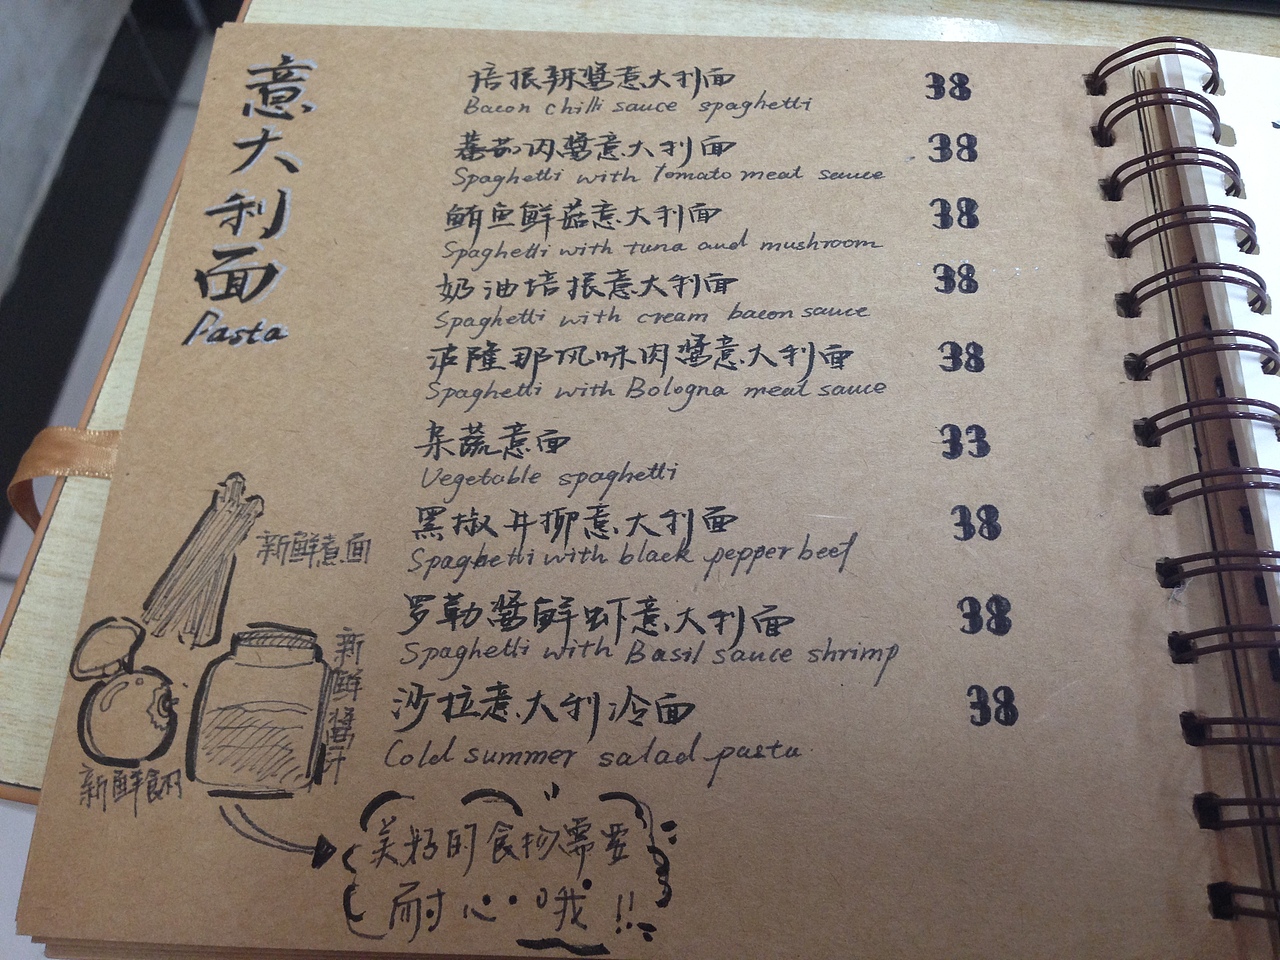 意大利面
Pasta
培根辣醬意大利面 38
Bacon chilli sauce spaghetti
蕃茄肉醬意大利面 38
Spaghetti with Tomato meat sauce
鲔鱼鲜菇意大利面 38
Spaghetti with tuna and mushroom
奶油培根意大利面 38
Spaghetti with cream bacon sauce
波隆那风味肉醬意大利面 38
Spaghetti with Bologna meat sauce
杂蔬意面 33
Vegetable spaghetti
黑椒牛柳意大利面 38
Spaghetti with black pepper beef
罗勒醬鲜虾意大利面 38
Spaghetti with Basil sauce shrimp
沙拉意大利冷面 38
Cold summer salad pasta
新鲜煮面
新鲜醬汁
新鲜食材
美好的食物需要
耐心哦!!